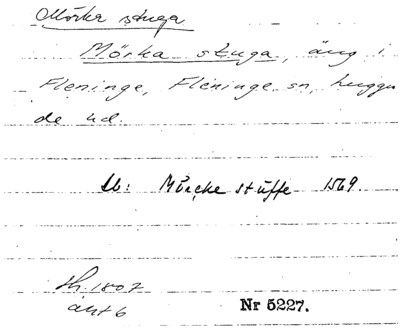 Mörka stuga
Mörka stuga, äng i
Fleninge, Fleninge sn, Luggu
de hd.
Lb: Mörcke stuffe 1569.
Lh. 1807
äkt 6
Nr 5227.